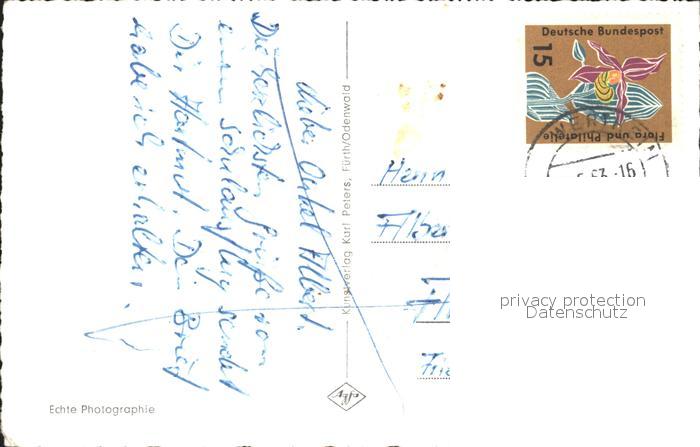 Lieber Onkel Albert,
Die herzlichsten Grüße vom
einem Schulausflug sendet
Dir Hartmut. Dein Brief
habe ich erhalten.
Echte Photographie
Kunstverlag Karl Peters, Fürth/Odenwald
Agfa
Herrn
Albe
Deutsche Bundespost
15
Flora und Philatelie
63.-16
privacy protection
Datenschutz